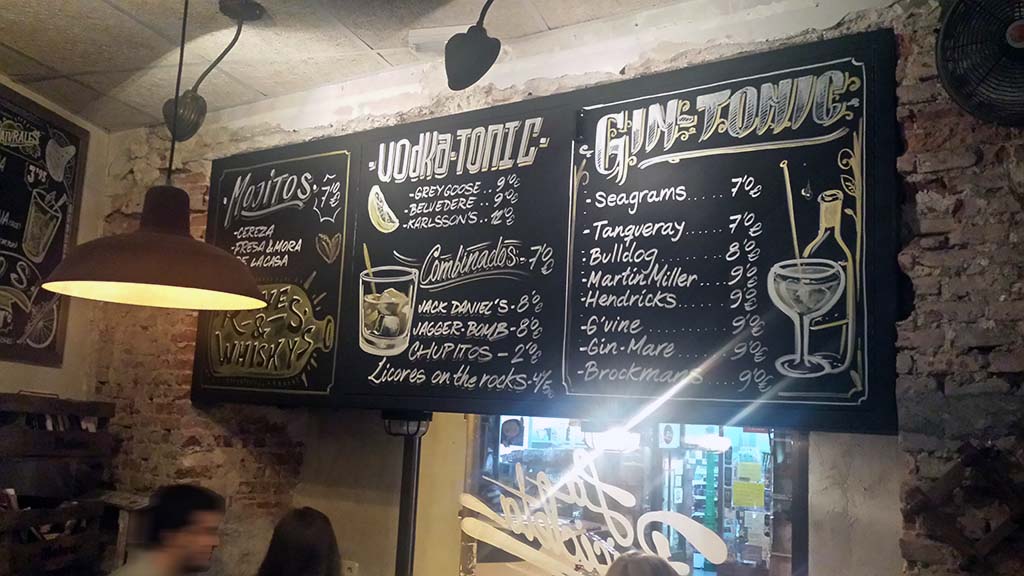 Mojitos 7'0€
-CEREZA
-FRESA & MORA
DE LA CASA
&
WHISKYS
-VODKA-TONIC-
-GREY GOOSE.. 9'0€
-BELVEDERE .. 9'0€
-KARLSSON'S.. 12'0€
Combinados -7'0€
JACK DANIEL'S-8'0€
JAGGER-BOMB-8'0€
CHUPITOS -2'0€
Licores on the rocks-4/5
GIN-TONIC
-Seagrams.... 7'0€
-Tanqueray .... 7'0€
-Bulldog....... 8'0€
-Martin Miller .. 9'0€
-Hendricks..... 9'0€
-G'vine ....... 9'0€
-Gin-Mare..... 9'0€
-Brockmans... 9'0€